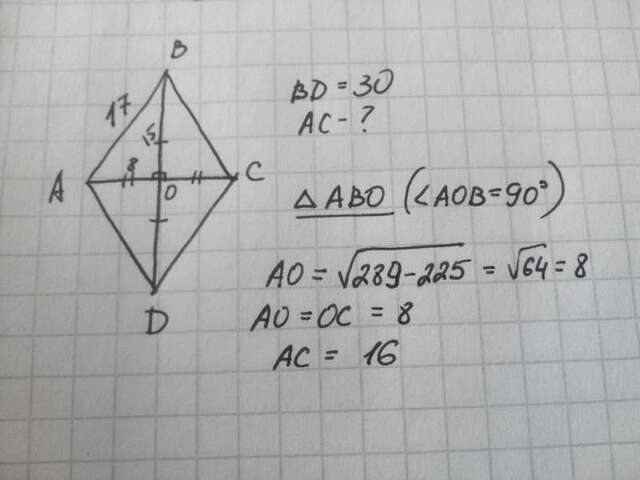 B
17
15
8
A
O
C
D
BD = 30
AC - ?
△ ABO (∠AOB = 90°)
AO = √289 - 225 = √64 = 8
AO = OC = 8
AC = 16